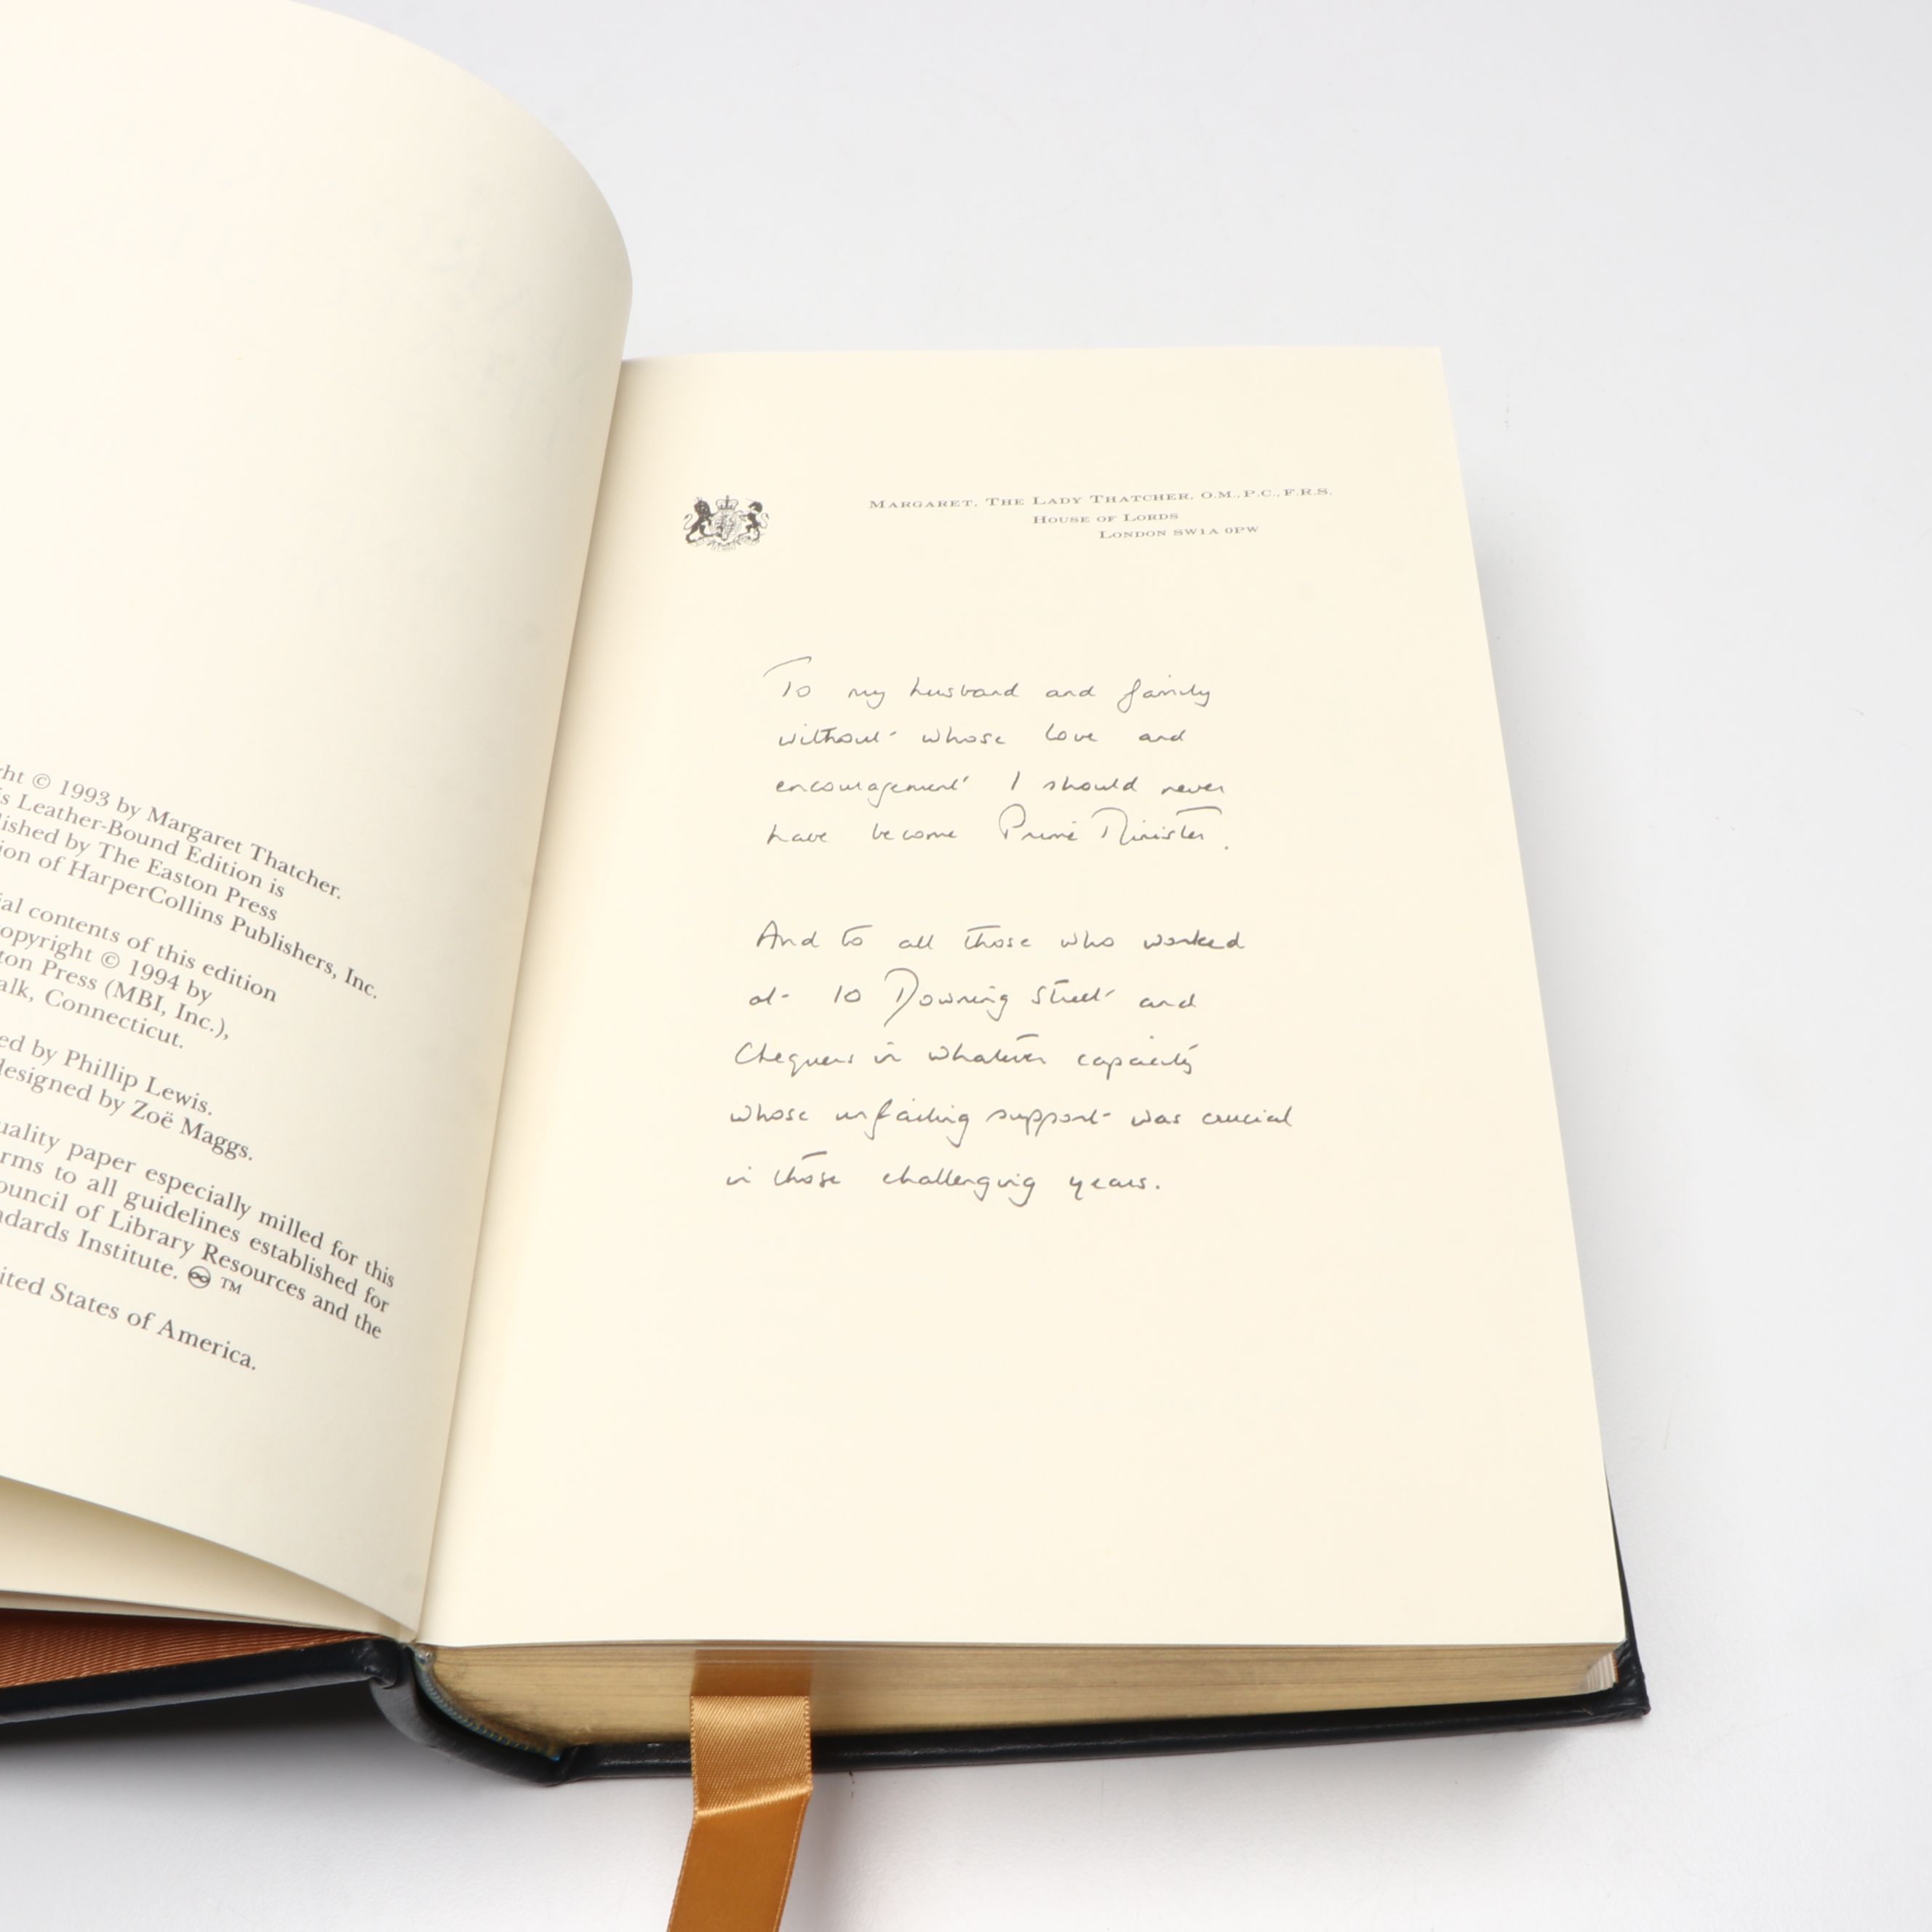 ht © 1993 by Margaret Thatcher.
is Leather-Bound Edition is
lished by The Easton Press
ion of HarperCollins Publishers, Inc.
ial contents of this edition
opyright © 1994 by
ton Press (MBI, Inc.),
alk, Connecticut.
ed by Phillip Lewis.
designed by Zoë Maggs.
uality paper especially milled for this
rms to all guidelines established for
ouncil of Library Resources and the
ndards Institute. ♾ ™
ited States of America.
MARGARET, THE LADY THATCHER, O.M., P.C., F.R.S.
HOUSE OF LORDS
LONDON SW1A 0PW
To my husband and family
without whose love and
encouragement I should never
have become Prime Minister.
And to all those who worked
at 10 Downing Street and
Chequers in whatever capacity
whose unfailing support was crucial
in those challenging years.